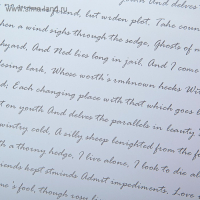 www.sima-land.ru
And delves
friend, but widen plot, Take coun
hen a wind sighs through the sedge, Ghosts of a
hyard, And Ned lies long in jail, And I come
osing lark, Whose worth's unknown hecks
d; Each changing place with that which goes
t on youth And delves the parallels in beauty
wintry cold, A silly sheep lenighted from the f
h a thorny hedge, I live alone, I look to die al
riends kept stwinds Admit impediments, Love
me's fool, though rosy li